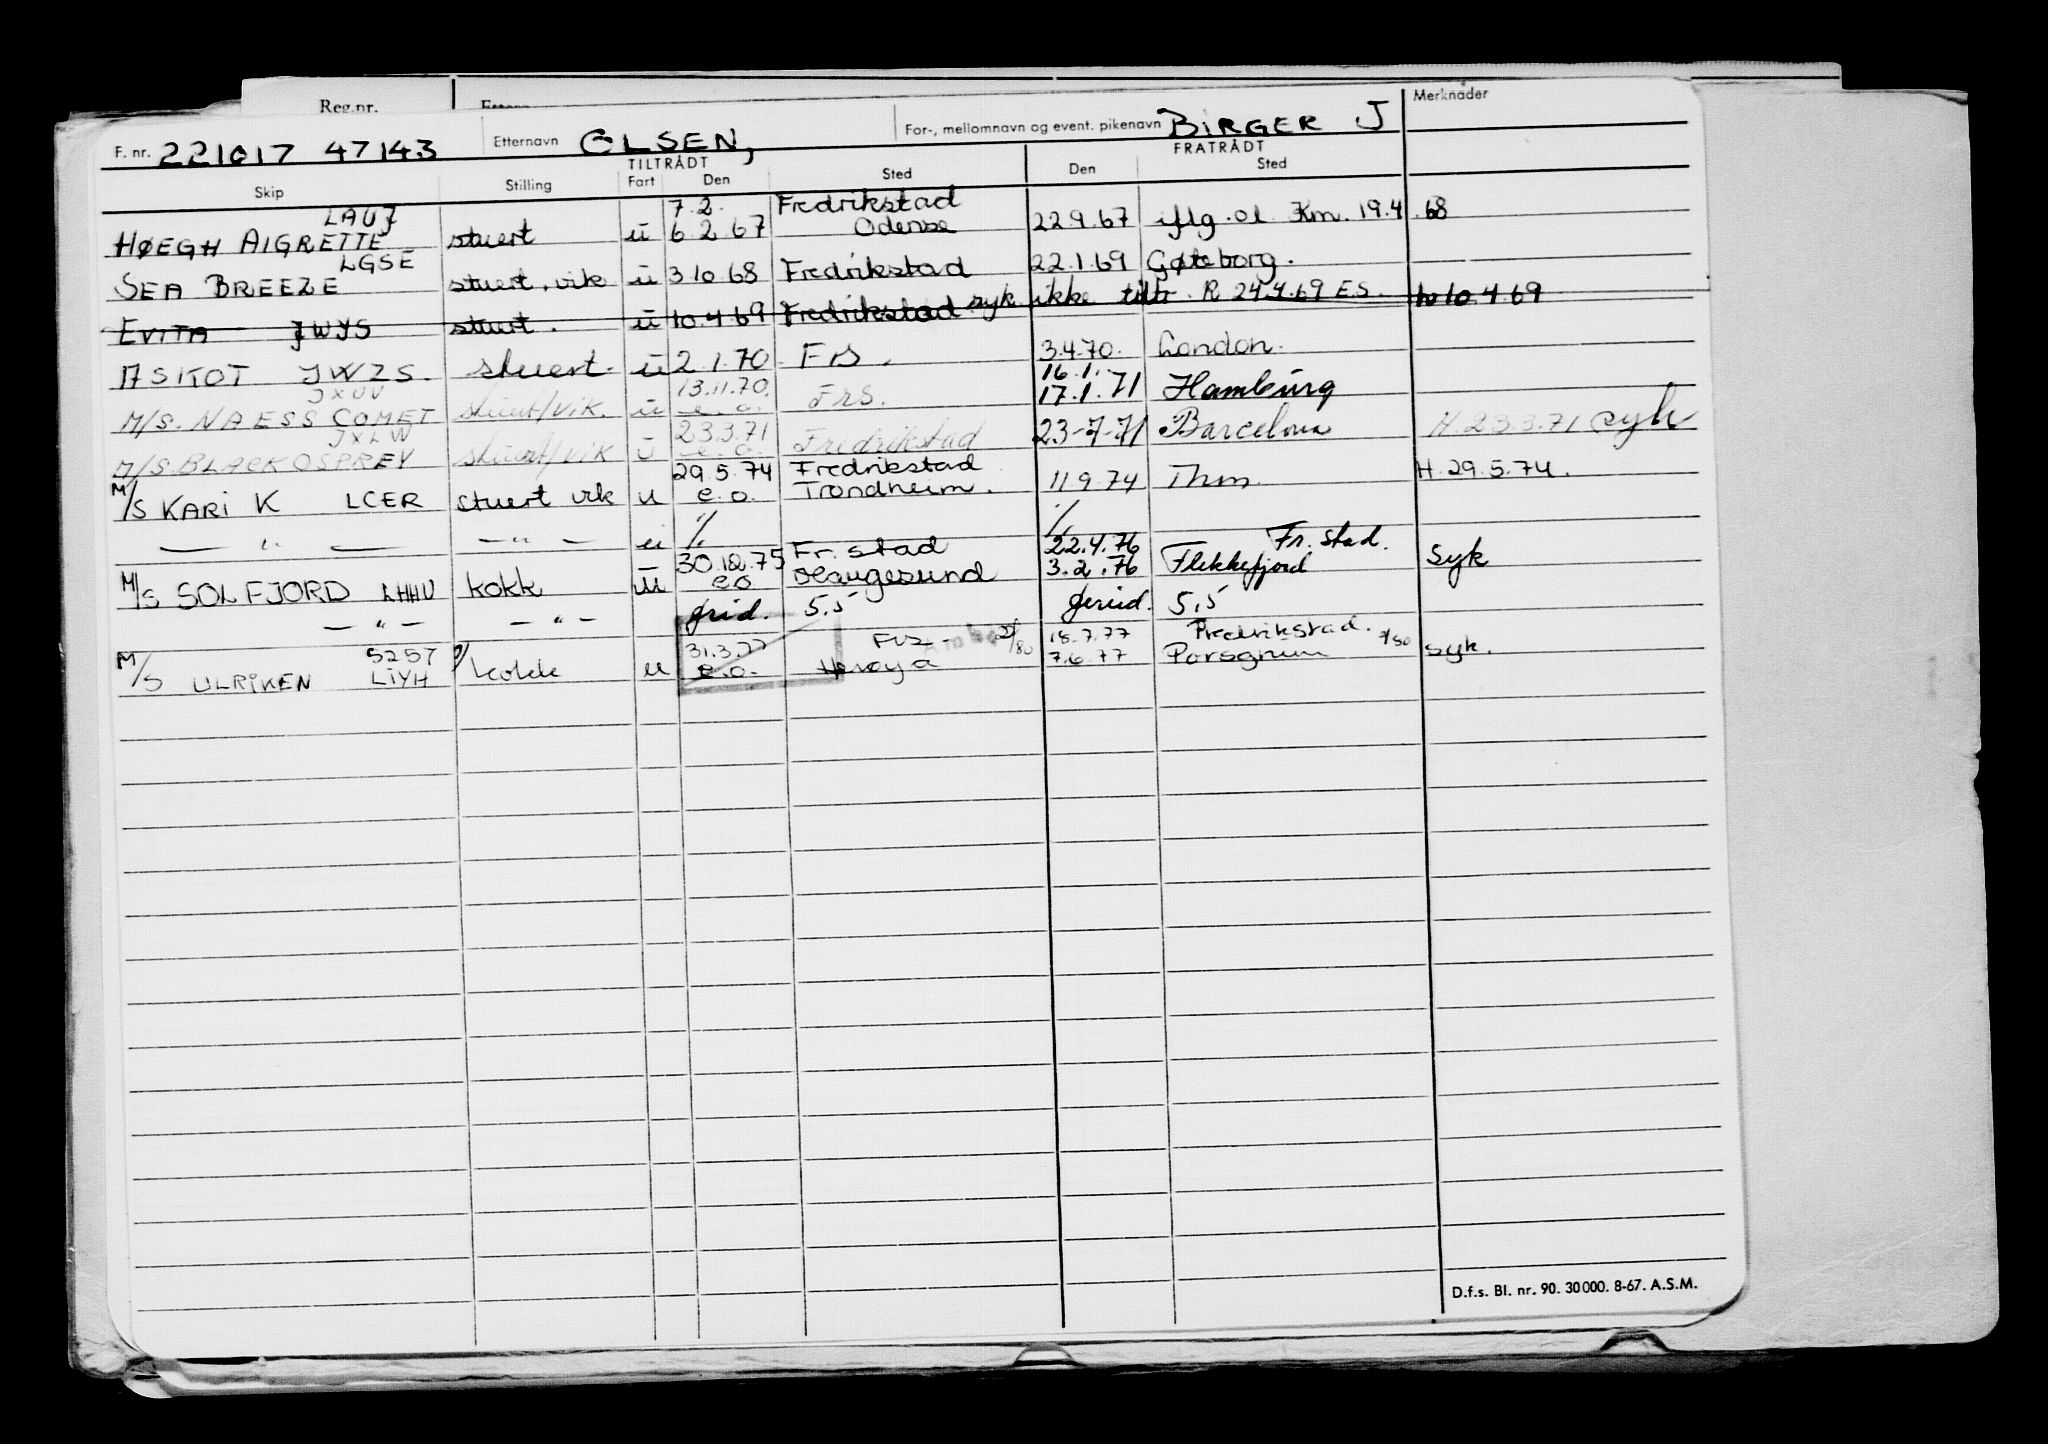 Reg.nr.
F. nr. 221017 47143 Etternavn OLSEN, For-, mellomnavn og event. pikenavn BIRGER J Merknader
TILTRÅDT FRATRÅDT
Skip Stilling Fart Den Sted Den Sted
LAUJ 7.2. Fredrikstad
HØEGH AIGRETTE stuert u 6.2.67 Odense 22.9.67 iflg. ol Km. 19.4.68
LGSE
SEA BREEZE stuert.vik u 3 10.68 Fredrikstad 22.1.69 Gøteborg.
EVITA JWYS stuert. u 10.4.69 Fredrikstad syk ikke tiltr. R 24.4.69 E.S. h 10.4.69
ASKOT JWZS. stuert. u 2.1.70 Frs. 3.4.70. London.
JXUV 13.11.70. 16.1.
M/S. NAESS COMET stuert/vik. u e.o. Frs. 17.1.71 Hamburg
JXLW 23.3.71
M/S. BLACK OSPREY stuert/vik u e.o. Fredrikstad 23-7-71 Barcelona H. 23.3.71 syk
29.5.74 Fredrikstad
M/S KARI K LCER stuert vik u e.o. Trondheim. 11 9.74 Thm. H. 29.5.74.
— " — — " — u % %
30.12.75 Fr. stad 22.4.76 Fr. stad.
M/S SOLFJORD LHHU kokk u eo Haugesund 3.2.76 Flekkefjord syk
— " — — " — grid. 5.5 5.5
5257 31.3.77 Frs - 18.7.77 Fredrikstad.
M/S ULRIKEN LIYH kokk u e.o. Herøya 7.6.77 Porsgrunn syk.
D.f.s. Bl. nr. 90. 30000. 8-67. A.S.M.